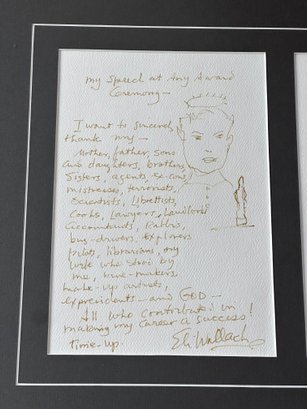 my speech at any Award
Ceremony—
I want to sincerely
thank my—
Mother, father, sons
and daughters, brothers,
Sisters, agents, ex-cons
mistresses, terrorists,
Scientists, Librettists,
Cooks, Lawyers, Landlords
accountants, Rabbis,
bus-drivers, explorers
pilots, librarians, my
wife who stood by
me, wine-makers,
make-up artists,
ex presidents—and GOD—
All who contributed in
making my career a success!
time-up.
Eli Wallach